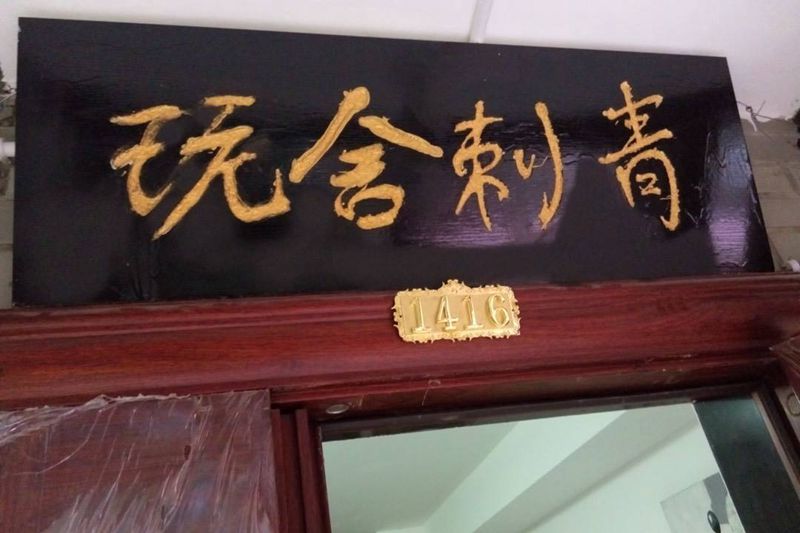 玩舍刺青
1416